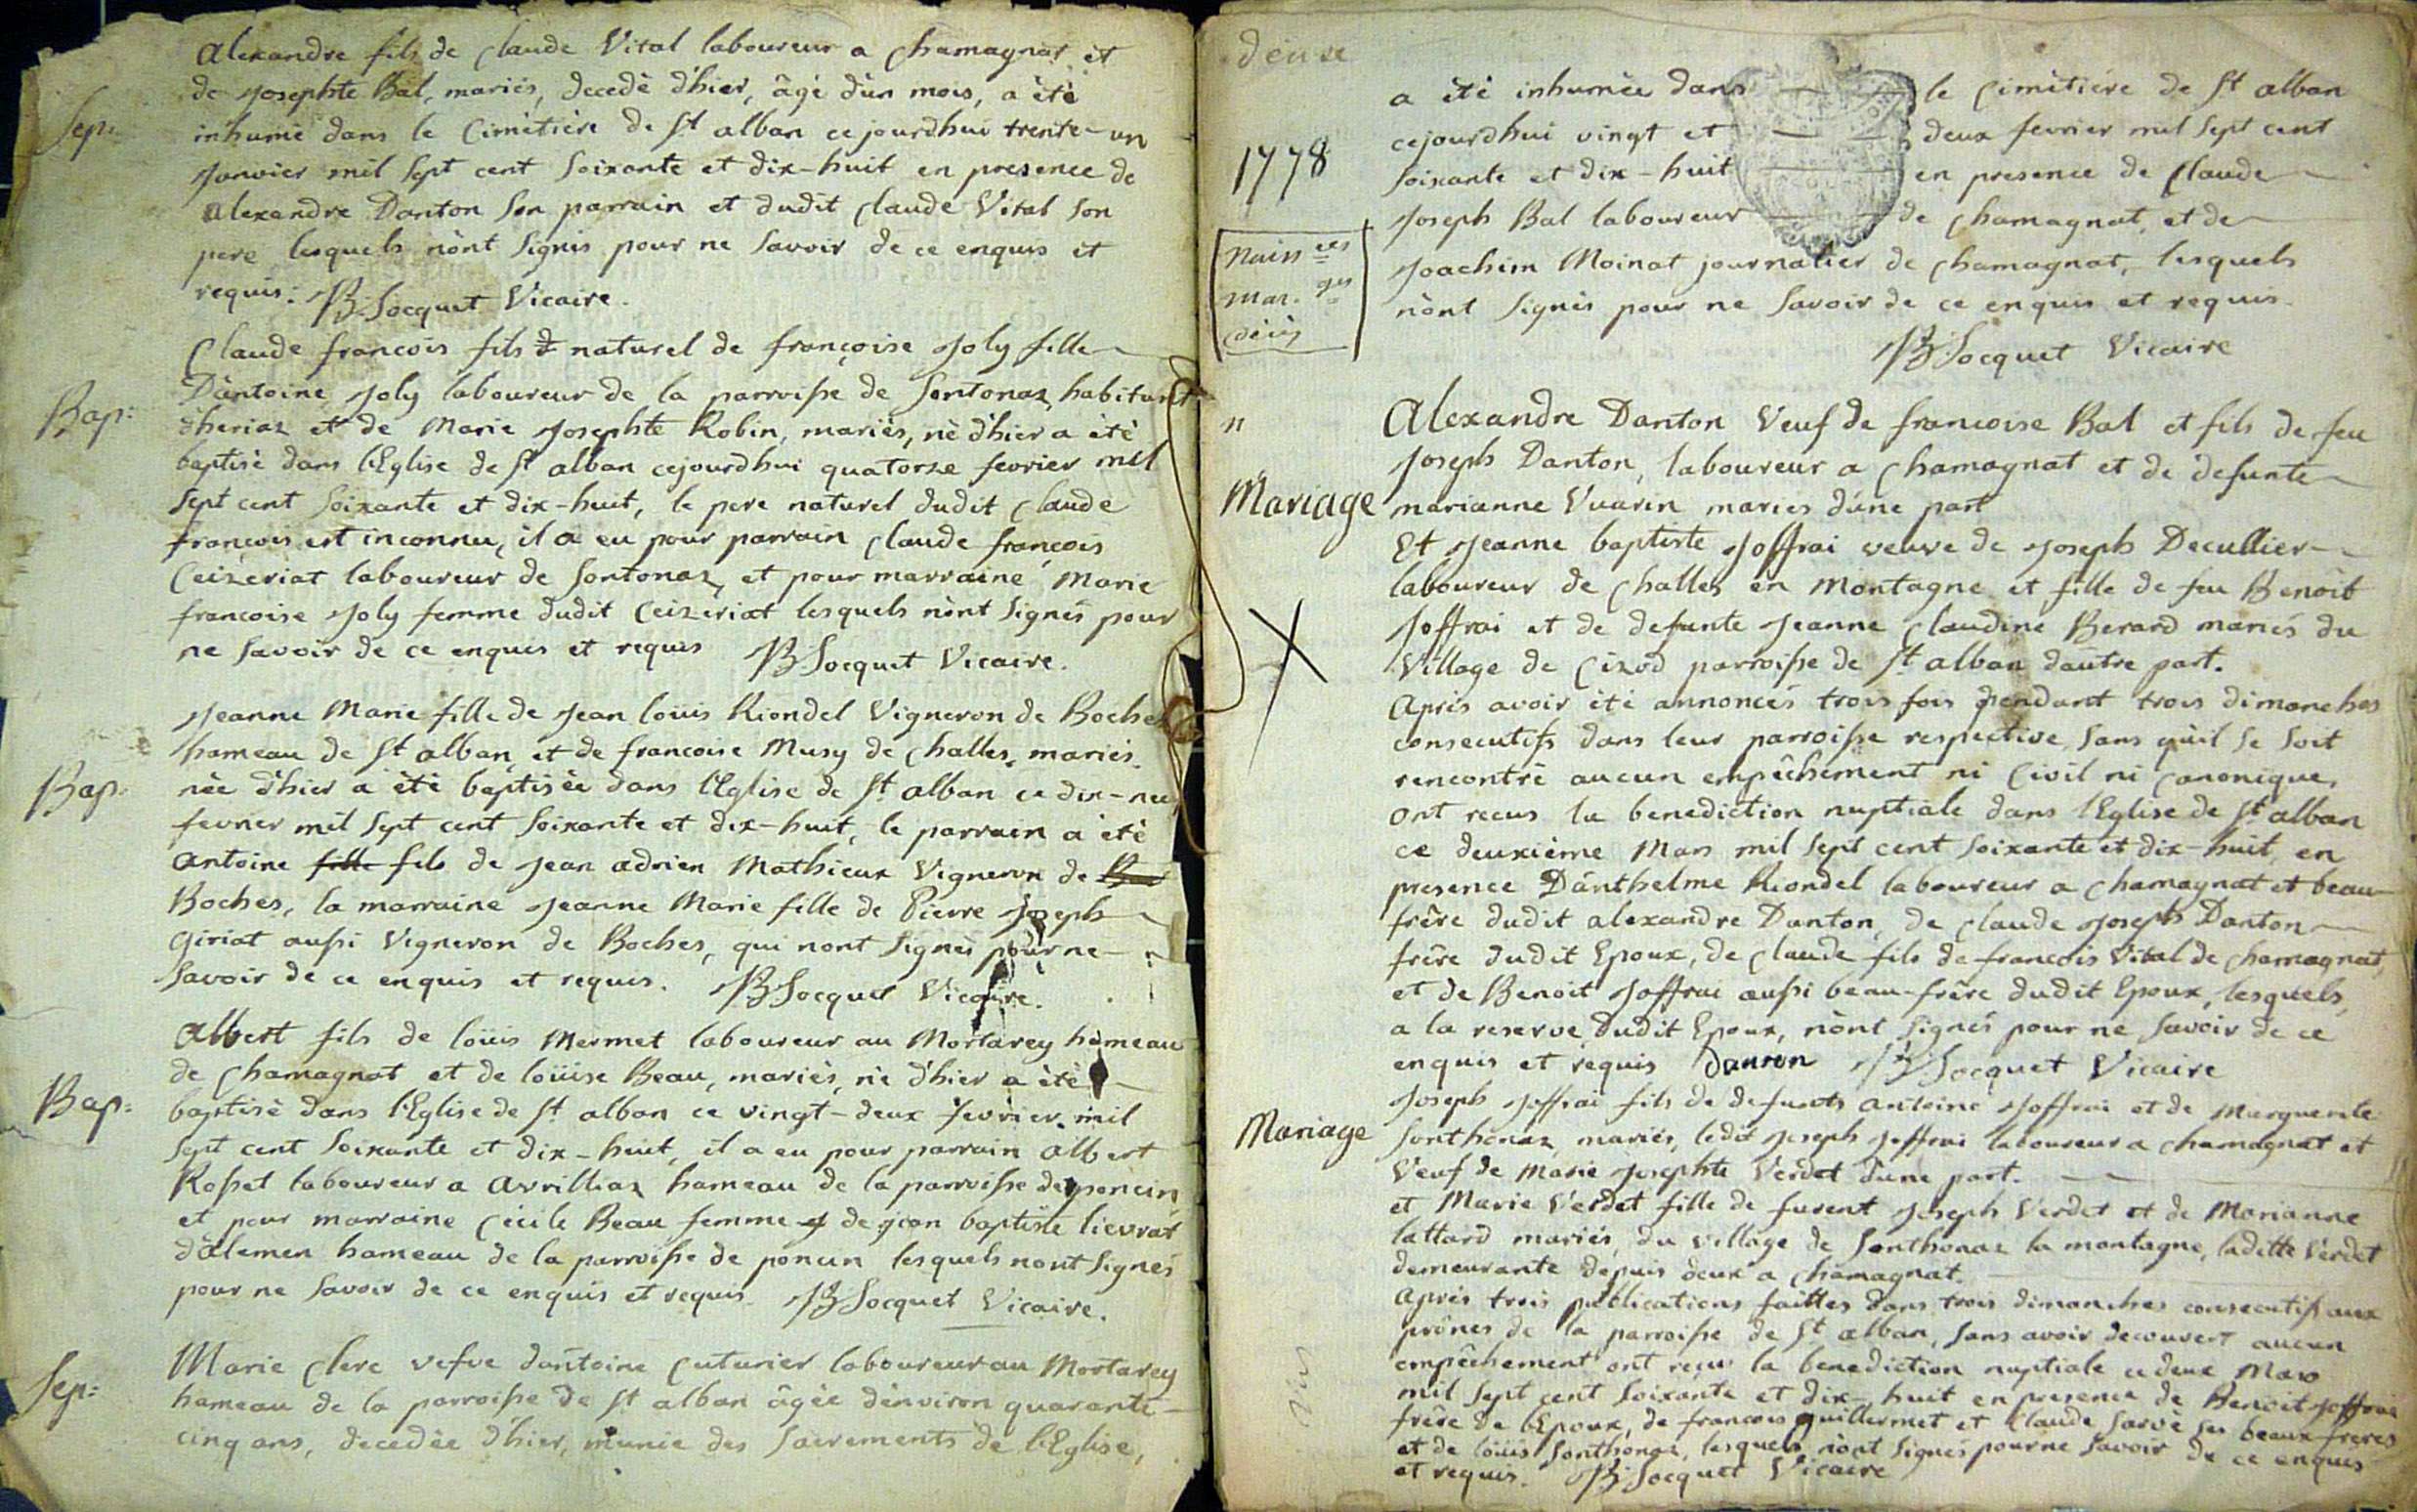 Sep:
alexandre fils de Claude Vital laboureur a Chamagnat et
de Josephte Bal, mariés, decedé d'hier, âgé d'un mois, a été
inhumé dans le Cimetière de St alban cejourdhui trente-un
Janvier mil Sept cent Soixante et dix-huit en presence de
alexandre Danton Son parrain et dudit Claude Vital Son
pere lesquels nônt Signés pour ne Savoir de ce enquis et
requis. JB Socquet Vicaire.
Bap:
Claude francois fils naturel de françoise Joly fille
D'antoine Joly laboureur de la parroisse de Sontonaz habitant
d'heriaz et de Marie Josephte Robin, mariés, né d'hier a été
baptisé dans l'Eglise de St alban cejourdhui quatorze fevrier mil
Sept cent Soixante et dix-huit, le pere naturel dudit Claude
francois est inconnu, il a eu pour parrain Claude françois
Ceizeriat laboureur de Sontonaz, et pour marraine Marie
francoise Joly femme dudit Ceizeriat lesquels nônt Signés pour
ne Savoir de ce enquis et requis JB Socquet Vicaire.
Bap:
Jeanne Marie fille de Jean loüis Riondel Vigneron de Boches
hameau de St alban, et de francoise Musy de Challes, mariés.
née d'hier a été baptisée dans l'Eglise de St alban ce dix-neu
fevrier mil Sept cent Soixante et dix-huit, le parrain a été
antoine fille fils de Jean adrien Mathieux Vigneron de
Boches, la marraine Jeanne Marie fille de Pierre Joseph
Giriat aussi Vigneron de Boches, qui nont Signés pour ne
Savoir de ce enquis et requis. JB Socquet Vicaire.
Bap:
Albert fils de loüis Mermet laboureur au Mortarey hameau
de Chamagnat et de loüise Beau, mariés, né d'hier a été
baptisé dans l'Eglise de St alban ce vingt-deux fevrier mil
Sept cent Soixante et dix-huit, il a eu pour parrain albert
Rosset laboureur a avrilliaz hameau de la parroisse de poncin
et pour marraine Cécile Beau femme de jean baptiste lievrat
d'alemen hameau de la parroisse de poncin lesquels nont Signés
pour ne Savoir de ce enquis et requis. JB Socquet Vicaire.
Sep:
Marie Clerc vefve d'antoine Cuturier laboureur au Mortarey
hameau de la parroisse de St alban âgée d'environ quarante-
cinq ans, decedée d'hier, munie des Sacrements de l'Eglise,
1778
Naiss ces
Mar. ges
décès
a été inhumée dans le Cimétiére de St alban
cejourdhui vingt et deux fevrier mil Sept cent
Soixante et dix-huit en presence de Claude
Joseph Bal laboureur de Chamagnat, et de
Joachim Moinat journalier de Chamagnat, lesquels
nônt Signés pour ne Savoir de ce enquis et requis.
JB Socquet Vicaire
Mariage
Alexandre Danton Veuf de francoise Bal et fils de feu
Joseph Danton, laboureur a Chamagnat et de defunte
marianne Vuarin mariés d'une part
Et Jeanne baptiste Joffrai veuve de Joseph Decullier
laboureur de Challes en Montagne et fille de feu Benoit
Joffrai et de defunte Jeanne Claudine Berard mariés du
Village de Cizod parroisse de St alban d'autre part.
Après avoir été annoncés trois fois pendant trois dimanches
consecutifs dans leur parroisse respective, Sans qu'il Se Soit
rencontré aucun empêchement ni Civil ni Canonique,
ont recus la benediction nuptiale dans l'Eglise de St alban
ce deuxième Mars mil Sept cent Soixante et dix-huit, en
presence D'anthelme Riondel laboureur a Chamagnat et beau-
frère dudit alexandre Danton, de Claude Joseph Danton
frère dudit Epoux, de Claude fils de francois Vital de Chamagnat
et de Benoit Joffrai aussi beau-frère dudit Epoux, lesquels,
a la reserve dudit Epoux, nônt Signés pour ne Savoir de ce
enquis et requis Danton JB Socquet Vicaire
Mariage
Joseph Joffrai fils de defunts antoine Joffrai et de Marguerite
Sonthonaz mariés, ledit Joseph Joffrai laboureur a Chamagnat et
Veuf de Marie Josephte Verdet d'une part.
et Marie Verdet fille de furent Joseph Verdet et de Marianne
lattard mariés, du village de Sonthonaz la montagne, laditte Verdet
demeurante depuis deux a Chamagnat.
Après trois publications faittes dans trois dimanches consecutifs aux
prônes de la parroisse de St alban, Sans avoir decouvert aucun
empêchement ont reçu la benediction nuptiale ce deux Mars
mil Sept cent Soixante et dix-huit en presence de Benoit Joffrai
frère de l'Epoux, de francois guillermet et Claude Sarve Ses beaux-freres
et de loüis Sonthonaz, lesquels nônt Signés pour ne Savoir de ce enquis
et requis. JB Socquet Vicaire